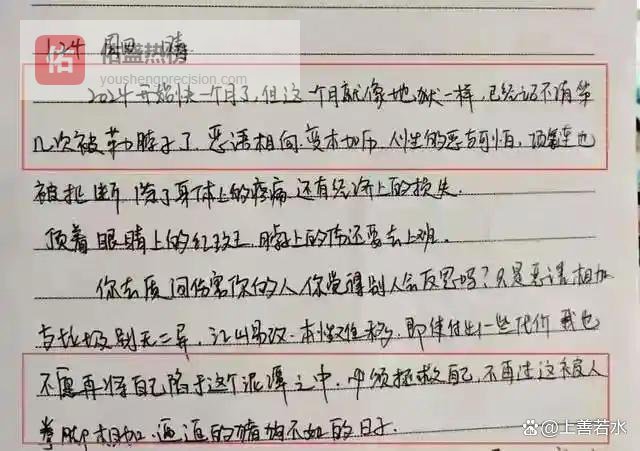 1.24 周四 晴
佑 佑盛热榜
youshengprecision.com
2024开始快一个月了,但这一个月就像地狱一样,已经记不清第
几次被勒脖子了 恶语相向 变本加厉 人性的恶与可怕,项链也
被扯断 除了身体上的疼痛 还有经济上的损失.
顶着眼睛上的红斑 脖子上的伤还要去上班.
你去质问伤害你的人你觉得别人会反思吗?只是恶语相加
与垃圾别无二异,江山易改·本性难移,即使付出一些代价 我也
不愿再将自己陷于这个泥潭之中.必须拯救自己,不再过这被人
拳脚相加.逼迫的猪狗不如的日子.
@上善若水